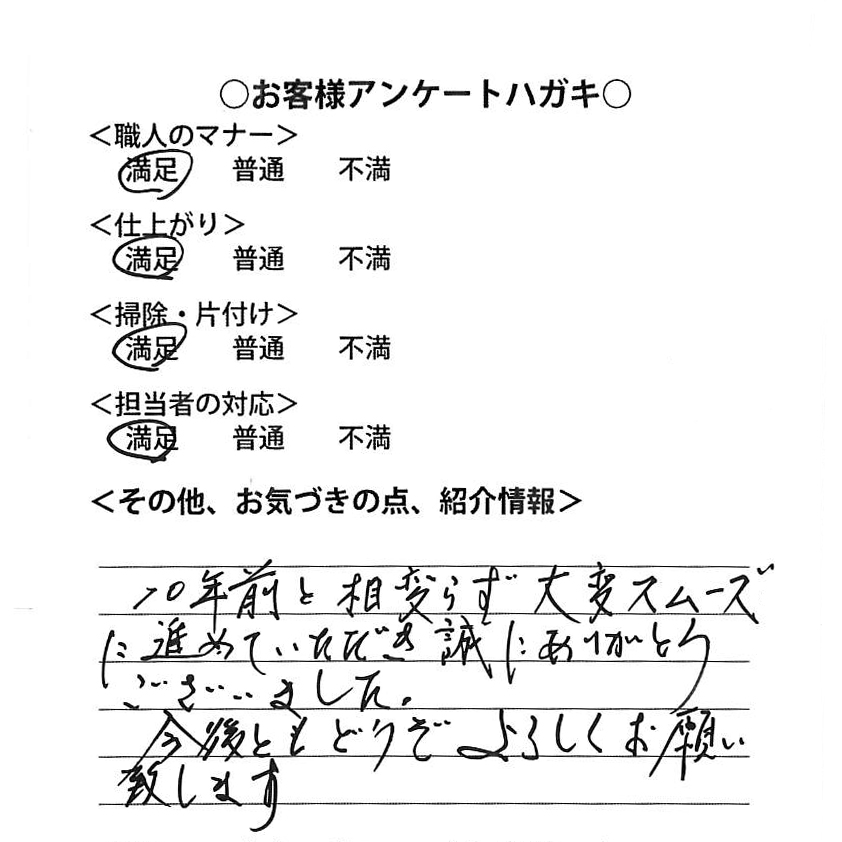 ○お客様アンケートハガキ○
＜職人のマナー＞
満足 普通 不満
＜仕上がり＞
満足 普通 不満
＜掃除・片付け＞
満足 普通 不満
＜担当者の対応＞
満足 普通 不満
＜その他、お気づきの点、紹介情報＞
10年前と相変らず大変スムーズ
に進めていただき誠にありがとう
ございました。
今後ともどうぞよろしくお願い
致します